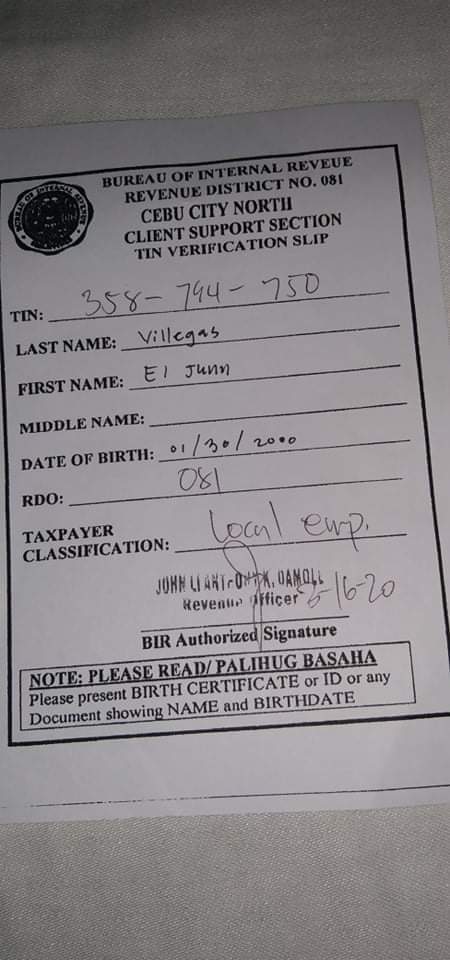 BUREAU OF INTERNAL REVEUE
REVENUE DISTRICT NO. 081
CEBU CITY NORTH
CLIENT SUPPORT SECTION
TIN VERIFICATION SLIP
TIN: 358-794-750
LAST NAME: Villegas
FIRST NAME: El Junn
MIDDLE NAME:
DATE OF BIRTH: 01/30/2000
RDO: 081
TAXPAYER
CLASSIFICATION: Local emp.
JOHN
Revenue Officer
BIR Authorized Signature
NOTE: PLEASE READ/ PALIHUG BASAHA
Please present BIRTH CERTIFICATE or ID or any
Document showing NAME and BIRTHDATE